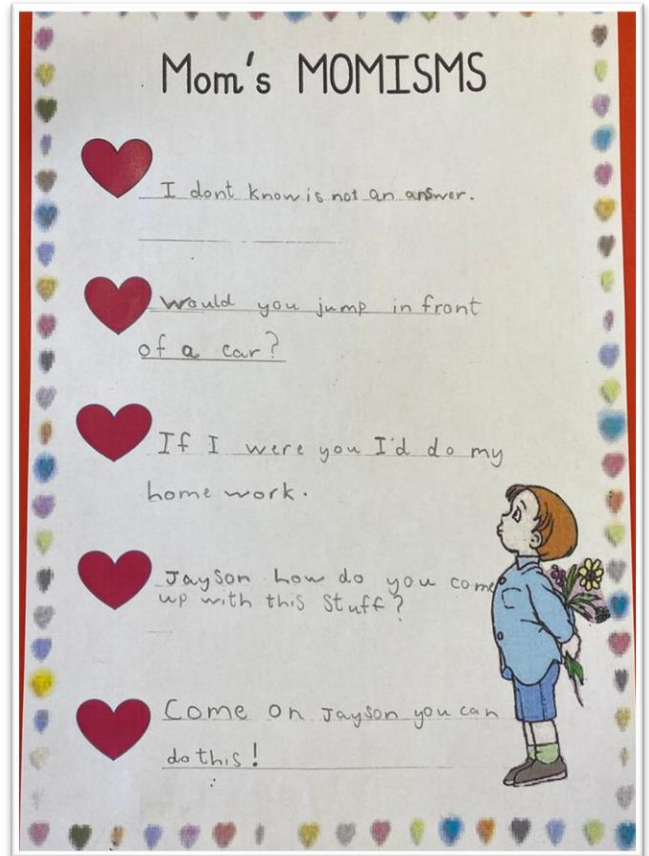 Mom's MOMISMS
I dont know is not an answer.
Would you jump in front
of a car?
If I were you I'd do my
home work.
Jayson how do you come
up with this stuff?
Come on Jayson you can
do this!